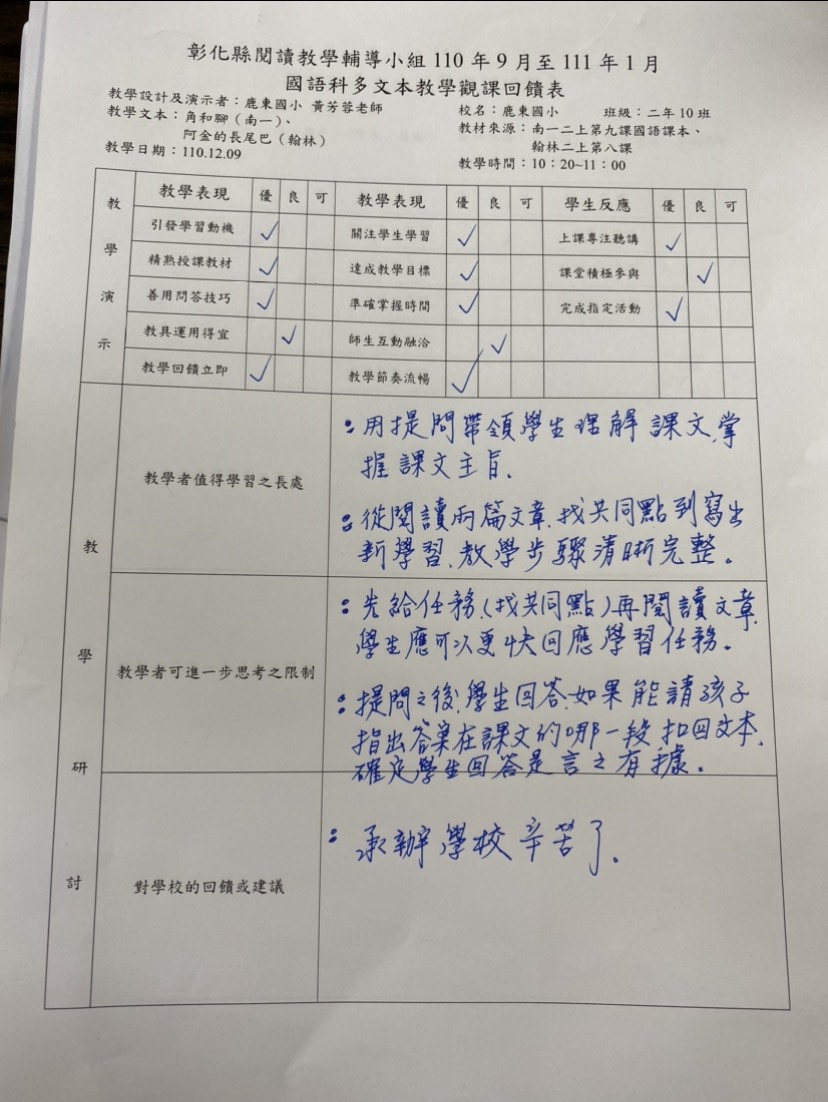 彰化縣閱讀教學輔導小組 110 年 9 月至 111 年 1 月
國語科多文本教學觀課回饋表
教學設計及演示者：鹿東國小 黃芳蓉老師
校名：鹿東國小 班級：二年 10 班
教學文本：角和腳（南一）、
教材來源：南一二上第九課國語課本、
阿金的長尾巴（翰林）
翰林二上第八課
教學日期：110.12.09
教學時間：10：20~11：00
教學演示
教學表現 優 良 可 教學表現 優 良 可 學生反應 優 良 可
引發學習動機 ✓ 關注學生學習 ✓ 上課專注聽講 ✓
精熟授課教材 ✓ 達成教學目標 ✓ 課堂積極參與 ✓
善用問答技巧 ✓ 準確掌握時間 ✓ 完成指定活動 ✓
教具運用得宜 ✓ 師生互動融洽 ✓
教學回饋立即 ✓ 教學節奏流暢 ✓
教學研討
教學者值得學習之長處
：用提問帶領學生理解課文,掌
握課文主旨.
：從閱讀兩篇文章.找共同點到寫出
新學習.教學步驟清晰完整。
教學者可進一步思考之限制
：先給任務(找共同點)再閱讀文章
學生應可以更快回應學習任務。
：提問之後,學生回答.如果能請孩子
指出答案在課文的哪一段 扣回文本.
確定學生回答是言之有據。
對學校的回饋或建議
：承辦學校辛苦了.